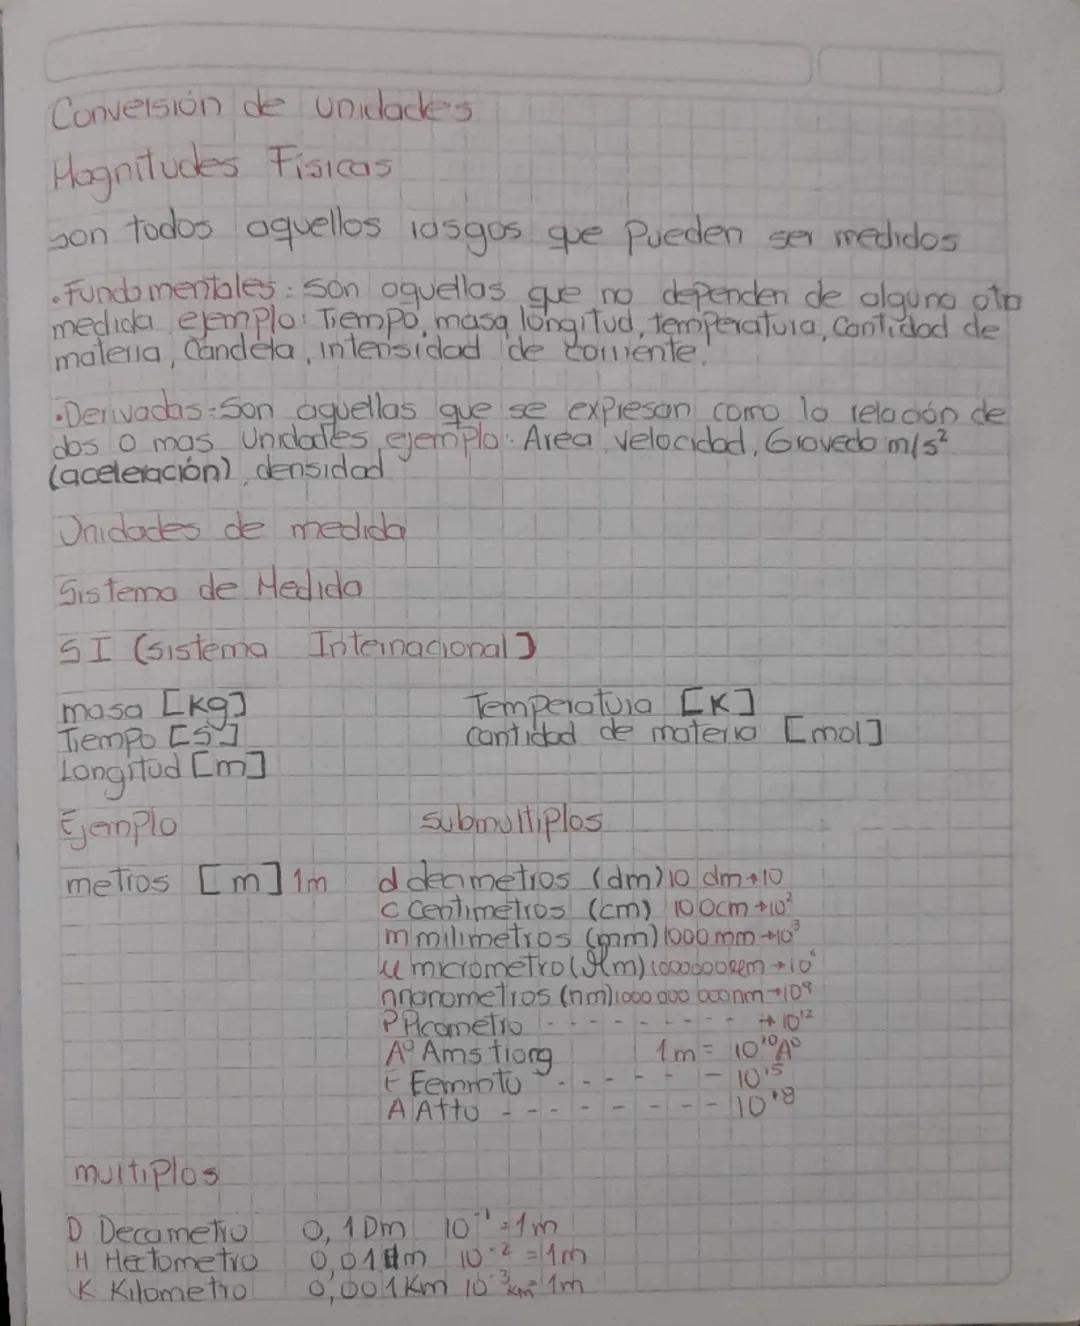 Conversión de unidades
Magnitudes Físicas
son todos aquellos rasgos que pueden ser medidos
•Fundamentales: Son aquellas que no dependen de alguna otra
medida ejemplo: Tiempo, masa longitud, temperatura, Cantidad de
materia, Candela, intensidad de corriente.
•Derivadas: Son aquellas que se expresan como la relación de
dos o mas Unidades ejemplo: Area, velocidad, Gravedad m/s²
(aceleración), densidad
Unidades de medida
Sistema de Medida
SI (sistema Internacional)
masa [kg] Temperatura [K]
Tiempo [s] cantidad de materia [mol]
Longitud [m]
Ejemplo submultiplos
metros [m] 1m d decimetros (dm) 10 dm→10
c centimetros (cm) 100cm→10²
m milimetros (mm) 1000mm→10³
μ micrometro (μm) 1000000μm→10⁶
n nanometros (nm) 1000 000 000nm→10⁹
P Picometro - - - - - - - - →10¹²
A° Amstrong 1m= 10¹⁰A°
F Femmto - - - - - - 10¹⁵
A Atto - - - - - - - - 10¹⁸
multiplos
D Decametro 0,1Dm 10⁻¹=1m
H Hectometro 0,01Hm 10⁻²=1m
K Kilometro 0,001Km 10⁻³km=1m